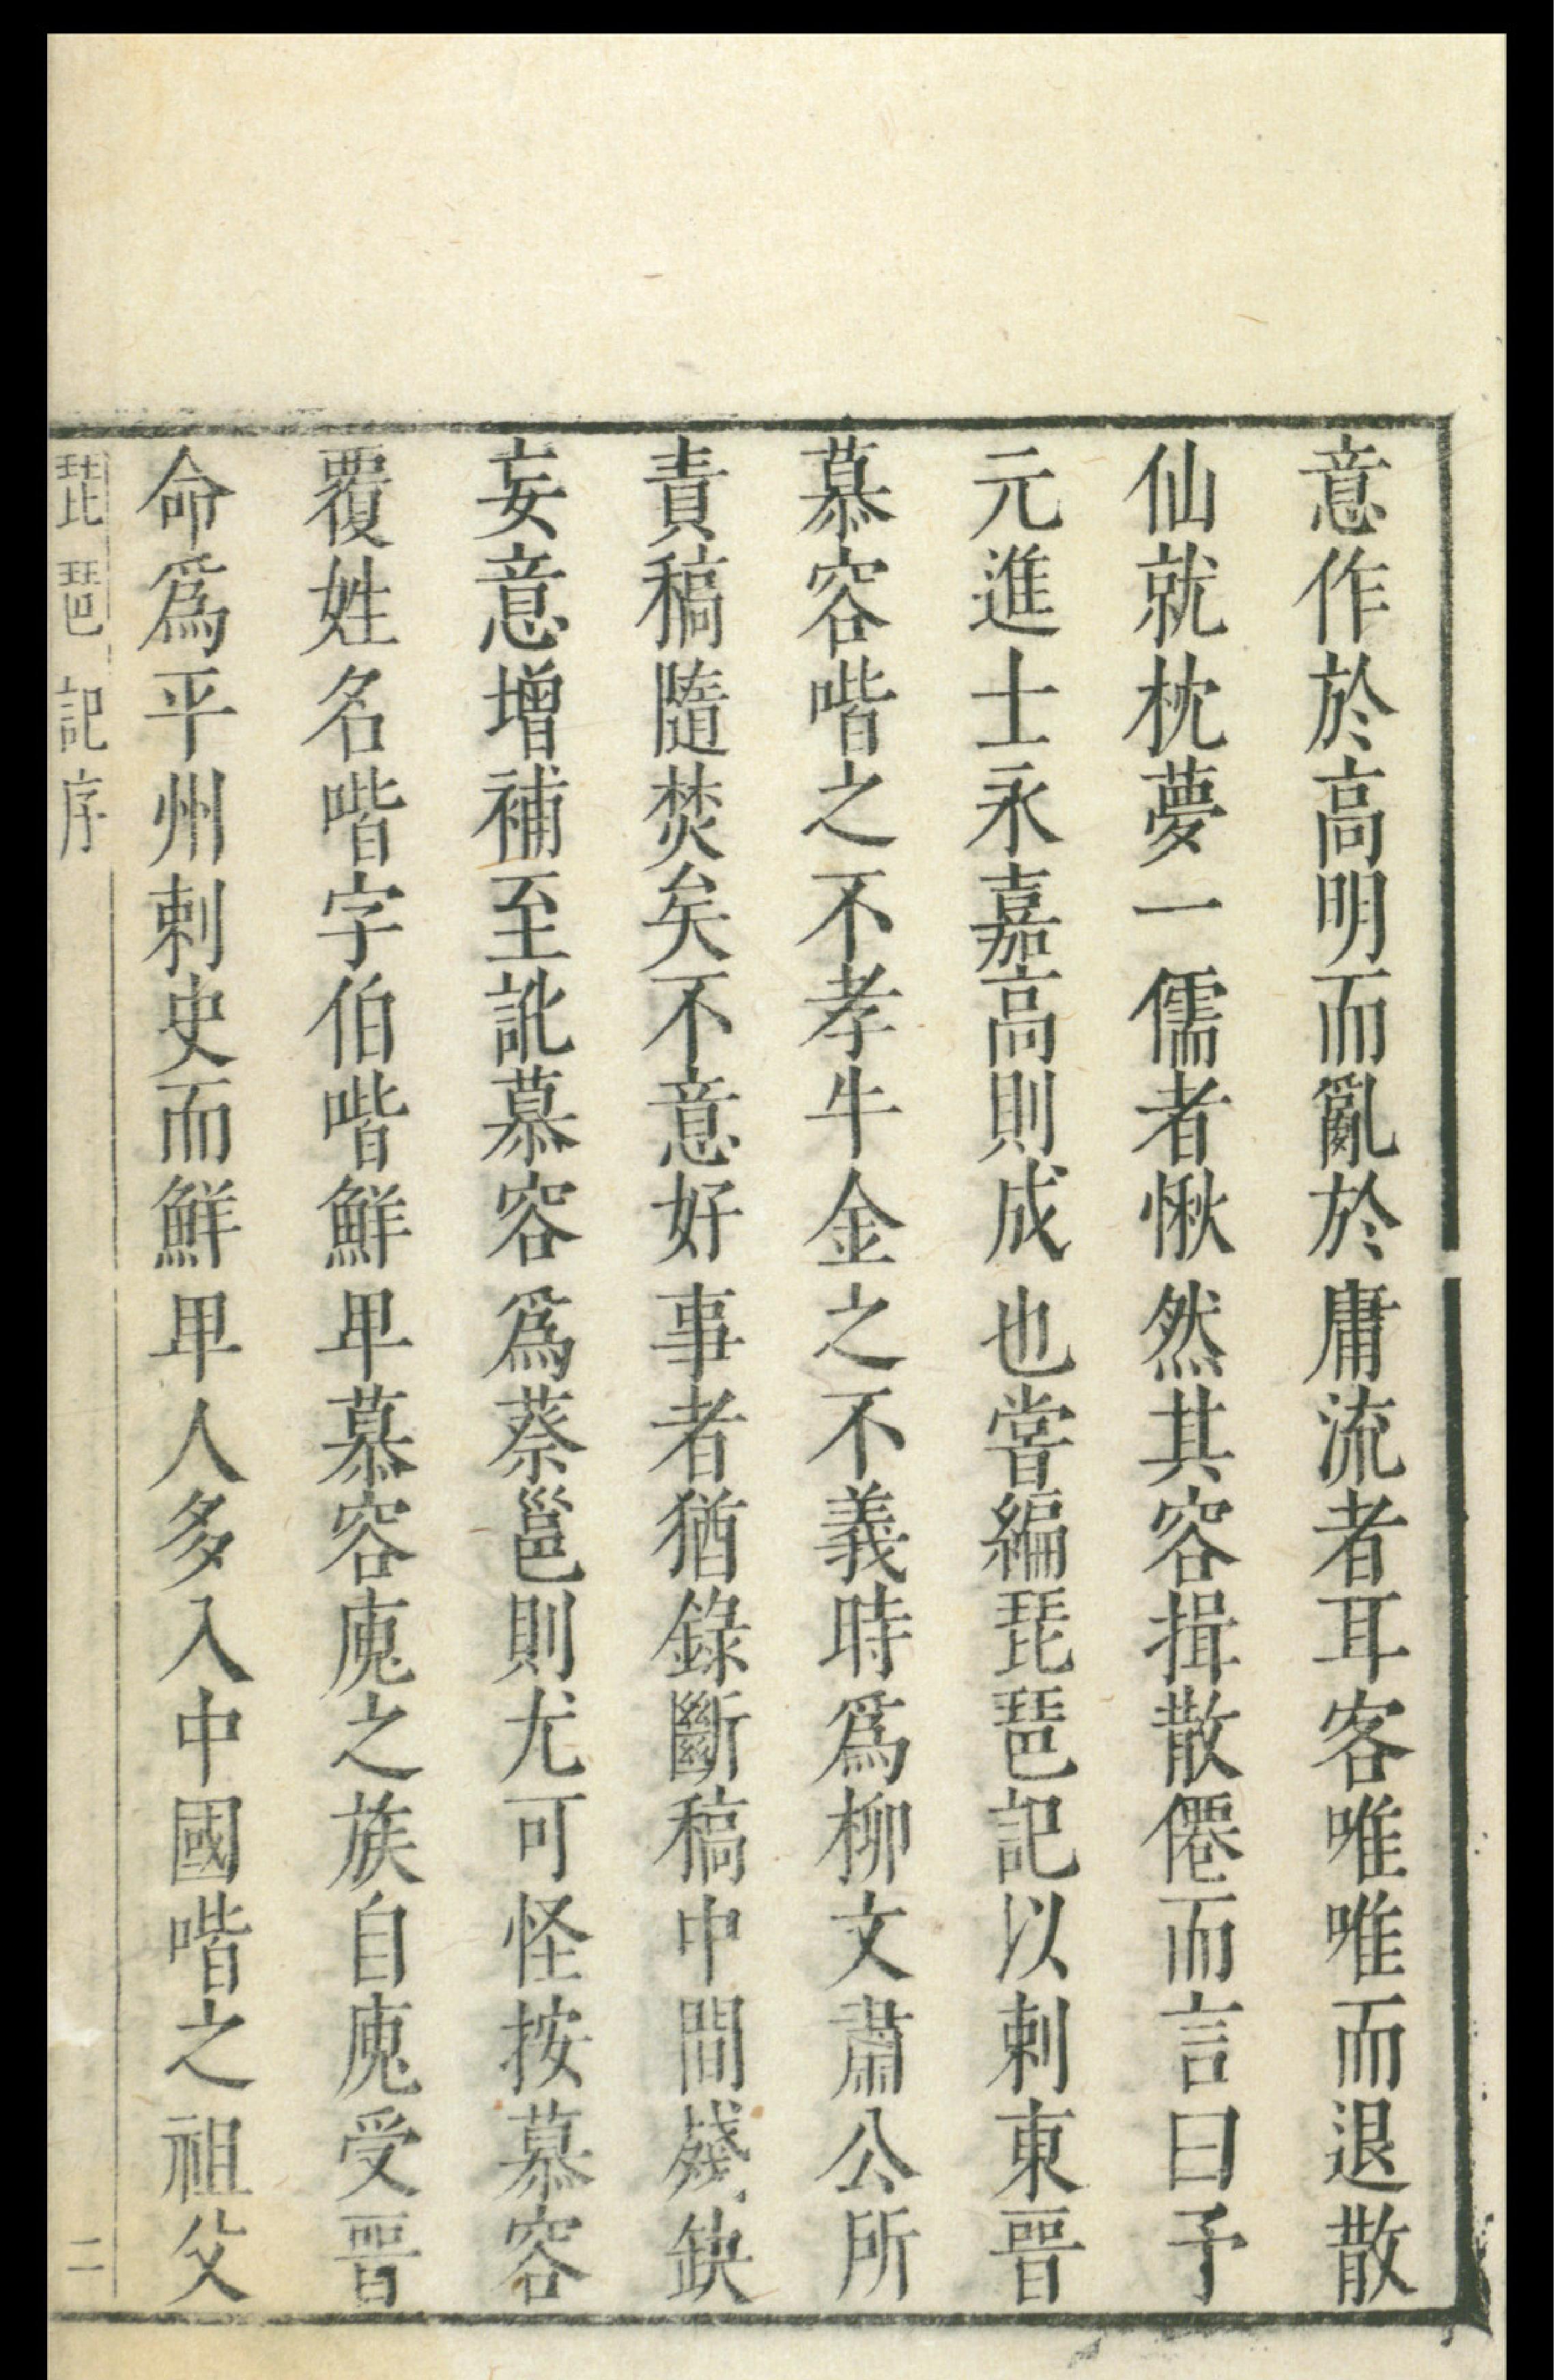 意作於高明而亂於庸流者耳客唯唯而退散
仙就枕夢一儒者愀然其容揖散僊而言曰予
元進士永嘉高則成也嘗編琵琶記以刺東晉
慕容喈之不孝牛金之不義時爲柳文肅公所
責稿隨焚矣不意好事者猶錄斷稿中間殘缺
妄意增補至訛慕容爲蔡邕則尤可怪按慕容
覆姓名喈字伯喈鮮卑慕容廆之族自廆受晉
命爲平州刺史而鮮卑人多入中國喈之祖父
琵琶記序
二